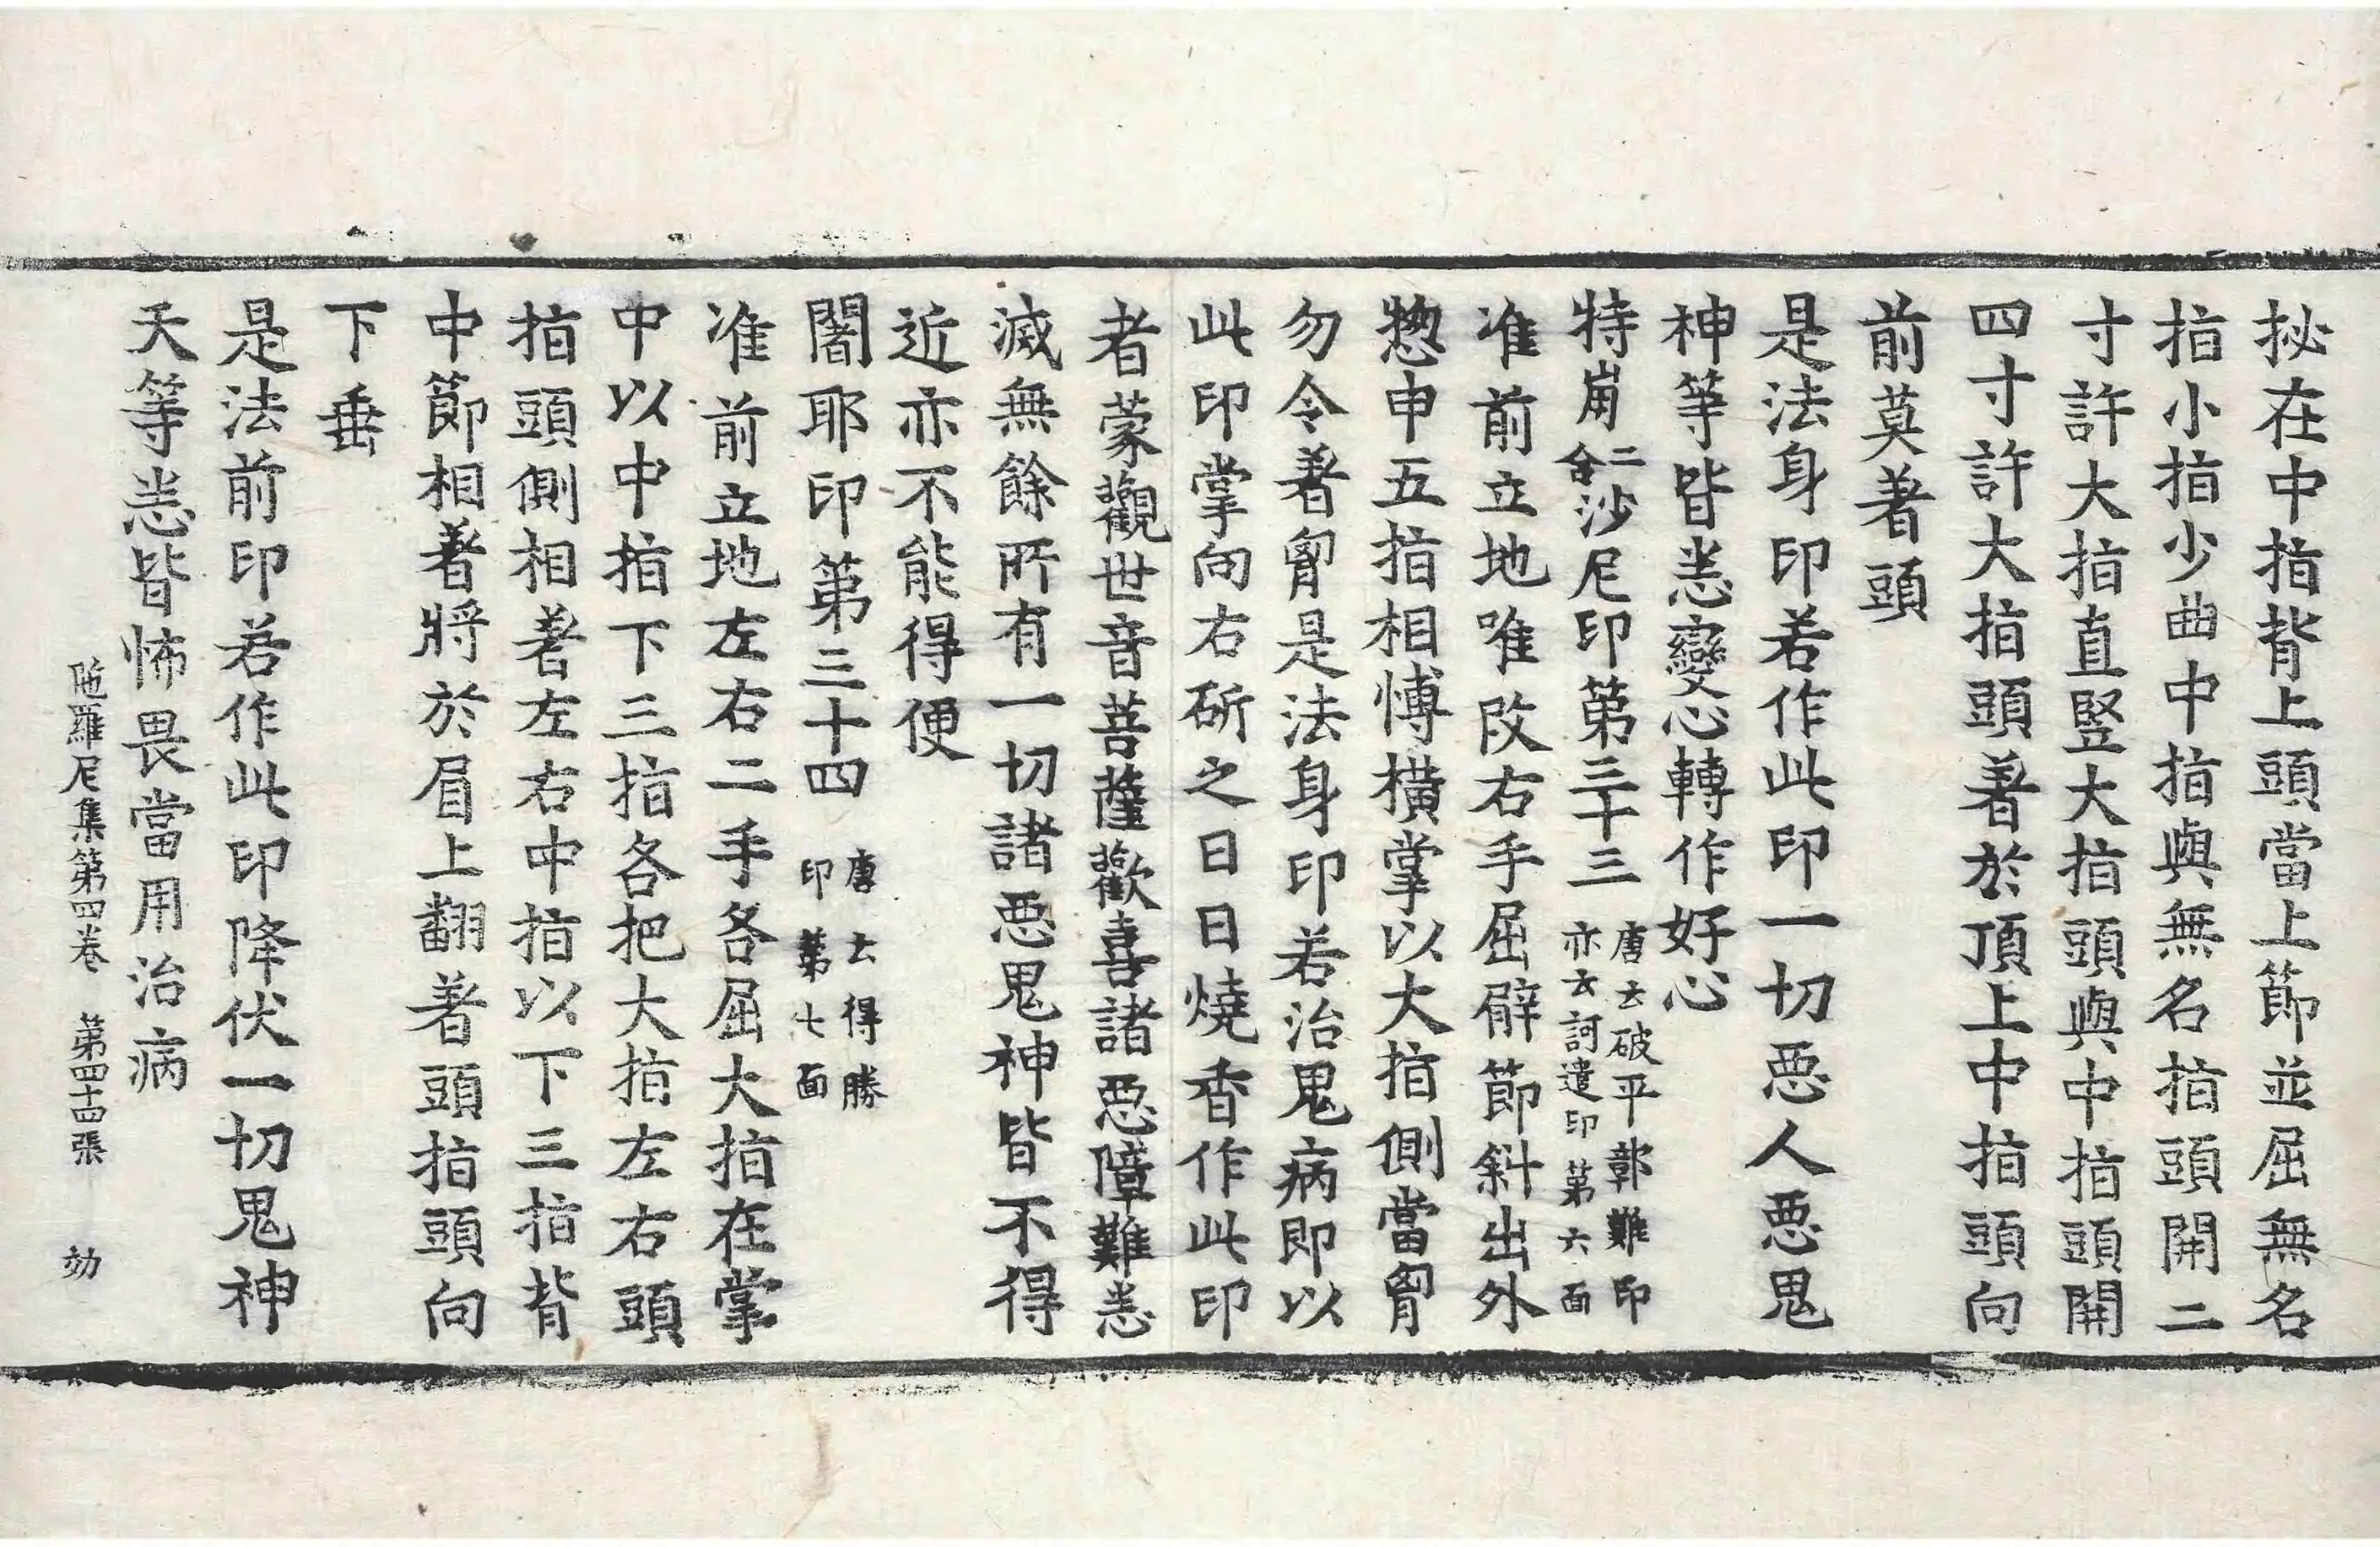 拟在中指背上頭當上節並屈無名
指小指少曲中指與無名指頭開二
寸許大指直竪大指頭與中指頭開
四寸許大指頭著於頂上中指頭向
前莫著頭
是法身印若作此印一切惡人惡鬼
神等皆悉變心轉作好心
特崗二合沙尼印第三十三唐云破平鄣難印亦云訶遣印第六面
准前立地唯改右手屈臂節斜出外
惣申五指相愽橫掌以大指側當胷
勿令著胷是法身印若治鬼病即以
此印掌向右斫之日日燒香作此印
者蒙觀世音菩薩歡喜諸惡障難悉
滅無餘所有一切諸惡鬼神皆不得
近亦不能得便
闍耶印第三十四唐云得勝印第七面
准前立地左右二手各屈大指在掌
中以中指下三指各把大指左右頭
指頭側相著左右中指以下三指背
中節相著將於眉上翻著頭指頭向
下垂
是法前印若作此印降伏一切鬼神
天等悉皆怖畏當用治病
陁羅尼集第四卷 第四十四張 効